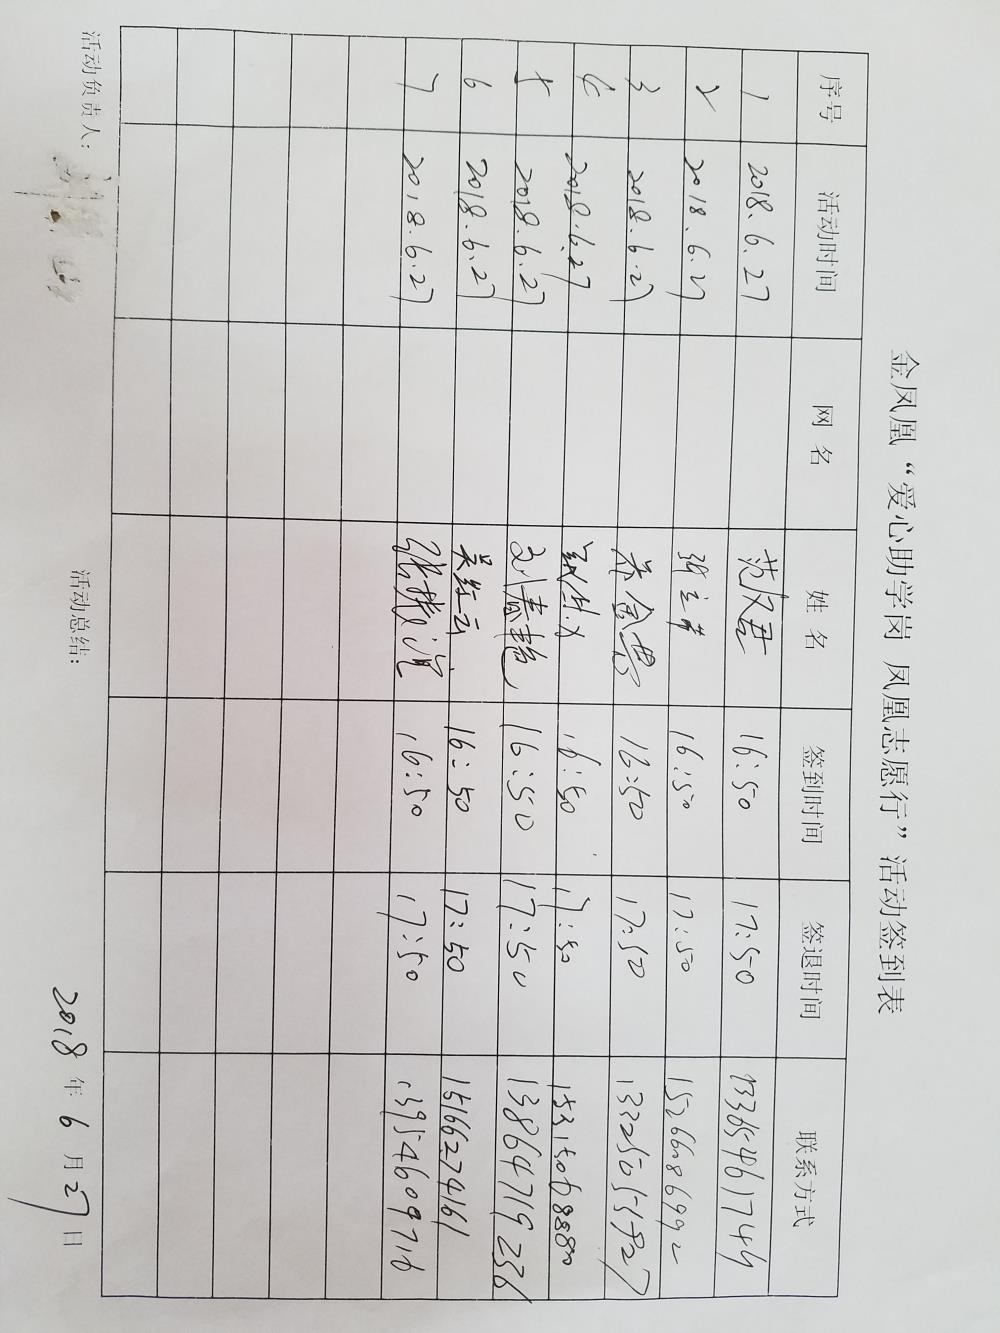 金凤凰“爱心助学岗 凤凰志愿行”活动签到表
序号 活动时间 网名 姓名 签到时间 签退时间 联系方式
1 2018.6.27 范君 16:50 17:50 13365461744
2 2018.6.27 16:50 17:50 15266086992
3 2018.6.27 16:50 17:50
4 2018.6.27 16:50 17:50
5 2018.6.27 刘春艳 16:50 17:50 13864719236
6 2018.6.27 吴红云 16:50 17:50 15166274161
7 2018.6.27 16:50 17:50 13954609716
活动负责人: 活动总结: 2018年6月27日